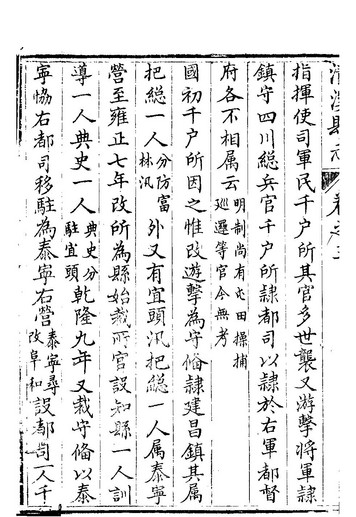 清溪縣志 卷之三
指揮使司軍民千户所其官多世襲又游擊將軍隸
鎮守四川總兵官千户所隸都司以隸於右軍都督
府各不相属云明制尚有屯田操捕巡邏等官今無考
國初千户所因之惟改遊擊為守俻隸建昌鎮其属
把總一人分防富林汛外又有宜頭汛把總一人属泰寧
營至雍正七年改所為縣始裁所官設知縣一人訓
導一人典史一人典史分駐宜頭乾隆九年又裁守俻以泰
寧協右都司移駐為泰寧右營泰寧尋改阜和設都司一人千